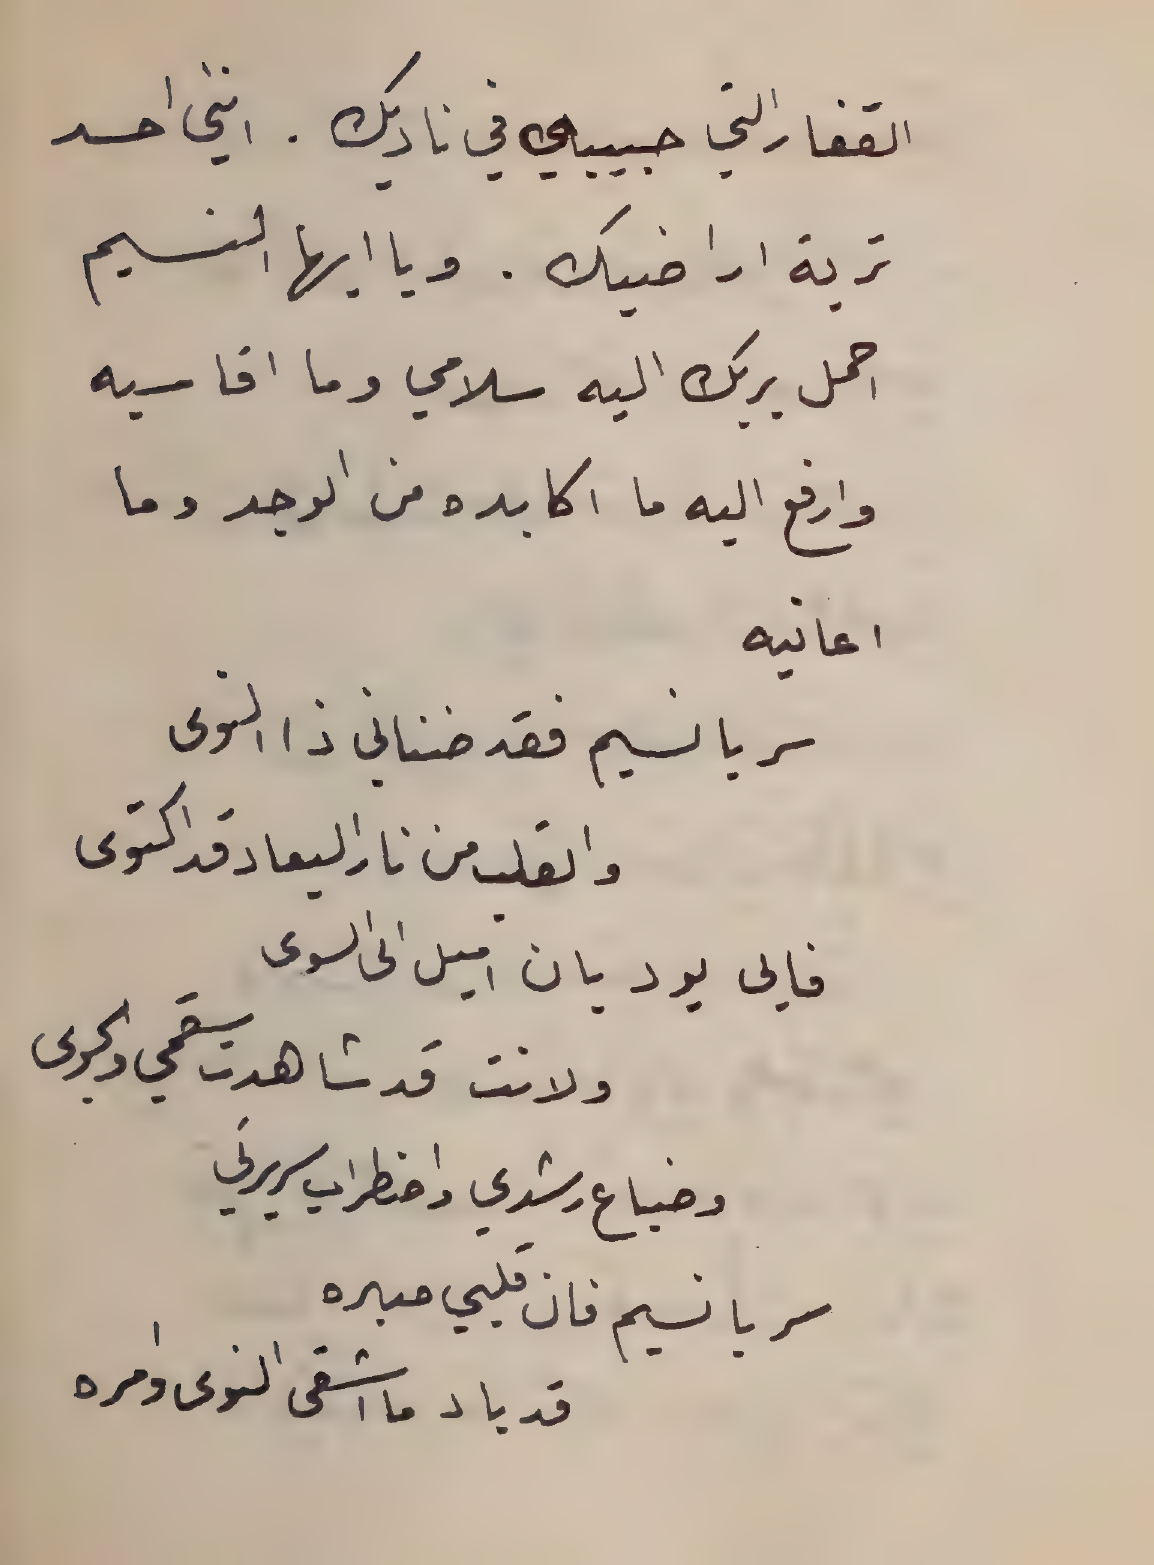 القفار التي حبيبي في ناديك . انني احسد
تربة اراضيك . ويا ايها النسيم
احمل بربك اليه سلامي وما اقاسيه
وارفع اليه ما اكابده من الوجد وما
اعانيه
سر يا نسيم فقد ضناني ذا النوى
والقلب من نار البعاد قد اكتوى
فابى يود بان اميل الى السوى
ولانت قد شاهدت سقمي والجوى
وضياع رشدي واضطراب سريرتي
سر يا نسيم فان قلبي صبره
قد باد ما اشقى النوى وامره